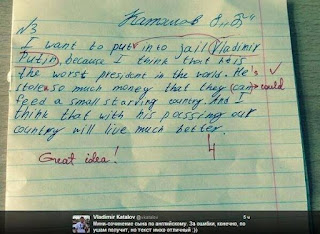 Каталов 8 "Б"
№3
I want to put into jail Vladimir
Putin, because I think that he is
the worst president in the world. He's
stolen so much money that they can could
feed a small starving country. And I
think that with his passing our
country will live much better.
Great idea! 4
Vladimir Katalov @vkatalov 5 ч
Мини-сочинение сына по английскому. За ошибки, конечно, по
ушам получит, но текст имхо отличный :))